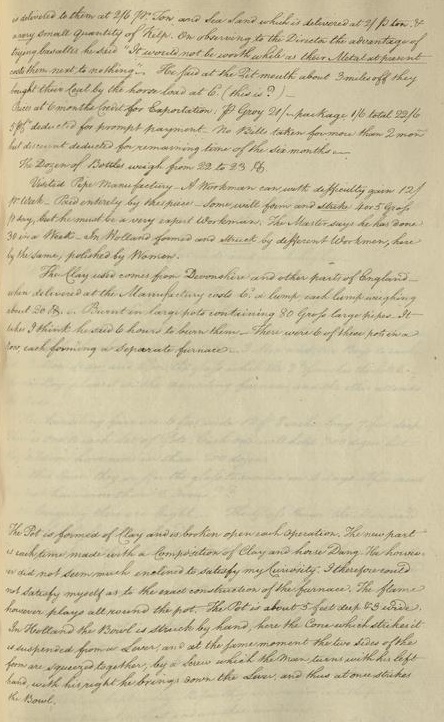 is delivered to them at 2/6 pr. Ton and Sea Sand which is delivered at 2/ p ton &
a very small Quantity of Kelp. On observing to the Director the advantage of
trying Cavalter he said "It would not be worth while as their Metal at present
costs them next to nothing". He said at the Pit mouth about 3 miles off they
bought their Coal by the horse load at 6 (this is?)
Prices at 6 months Credit for Exportation, P Groy 21/- package 1/6 total 22/6
deducted for prompt payment. No Bills taken for more than 2 mon
but discount deducted for remaining time of the six months
The Dozen of Bottles weigh from 22 to 23 lb
Visited Pipe Manufactory - A Workman can with difficulty gain 12/
pr Week - Paid entirely by the piece - Some will form and strike 4 or 5 Gross
p day, but he must be a very expert Workman. The Master says he has done
30 in a Week - In Holland formed and struck by different Workmen, here
by the same, polished by Women.
The Clay used comes from Devonshire and other parts of England
when delivered at the Manufactory costs 6d a lump each lump weighing
about 30 lb. Burnt in large pots containing 80 Gross large pipes. It
takes I think he said 6 hours to burn them - There were 6 of these pots in a
row, each forming a separate furnace.
The Pot is formed of Clay and is broken open each operation. The new part
is each time made with a Composition of Clay and horse Dung. He however
did not seem much inclined to satisfy my Curiosity. I therefore could
not satisfy myself as to the exact construction of the furnace. The flame
however plays all round the pot. The Pot is about 5 feet deep & 3 wide.
In Holland the Bowl is struck by hand, here the Cone which strikes it
is suspended from a Lever, and at the same moment the two sides of the
form are squeezed together, by a Screw which the Man turns with his left
hand, with his right he brings down the Lever, and thus at once strikes
the Bowl.